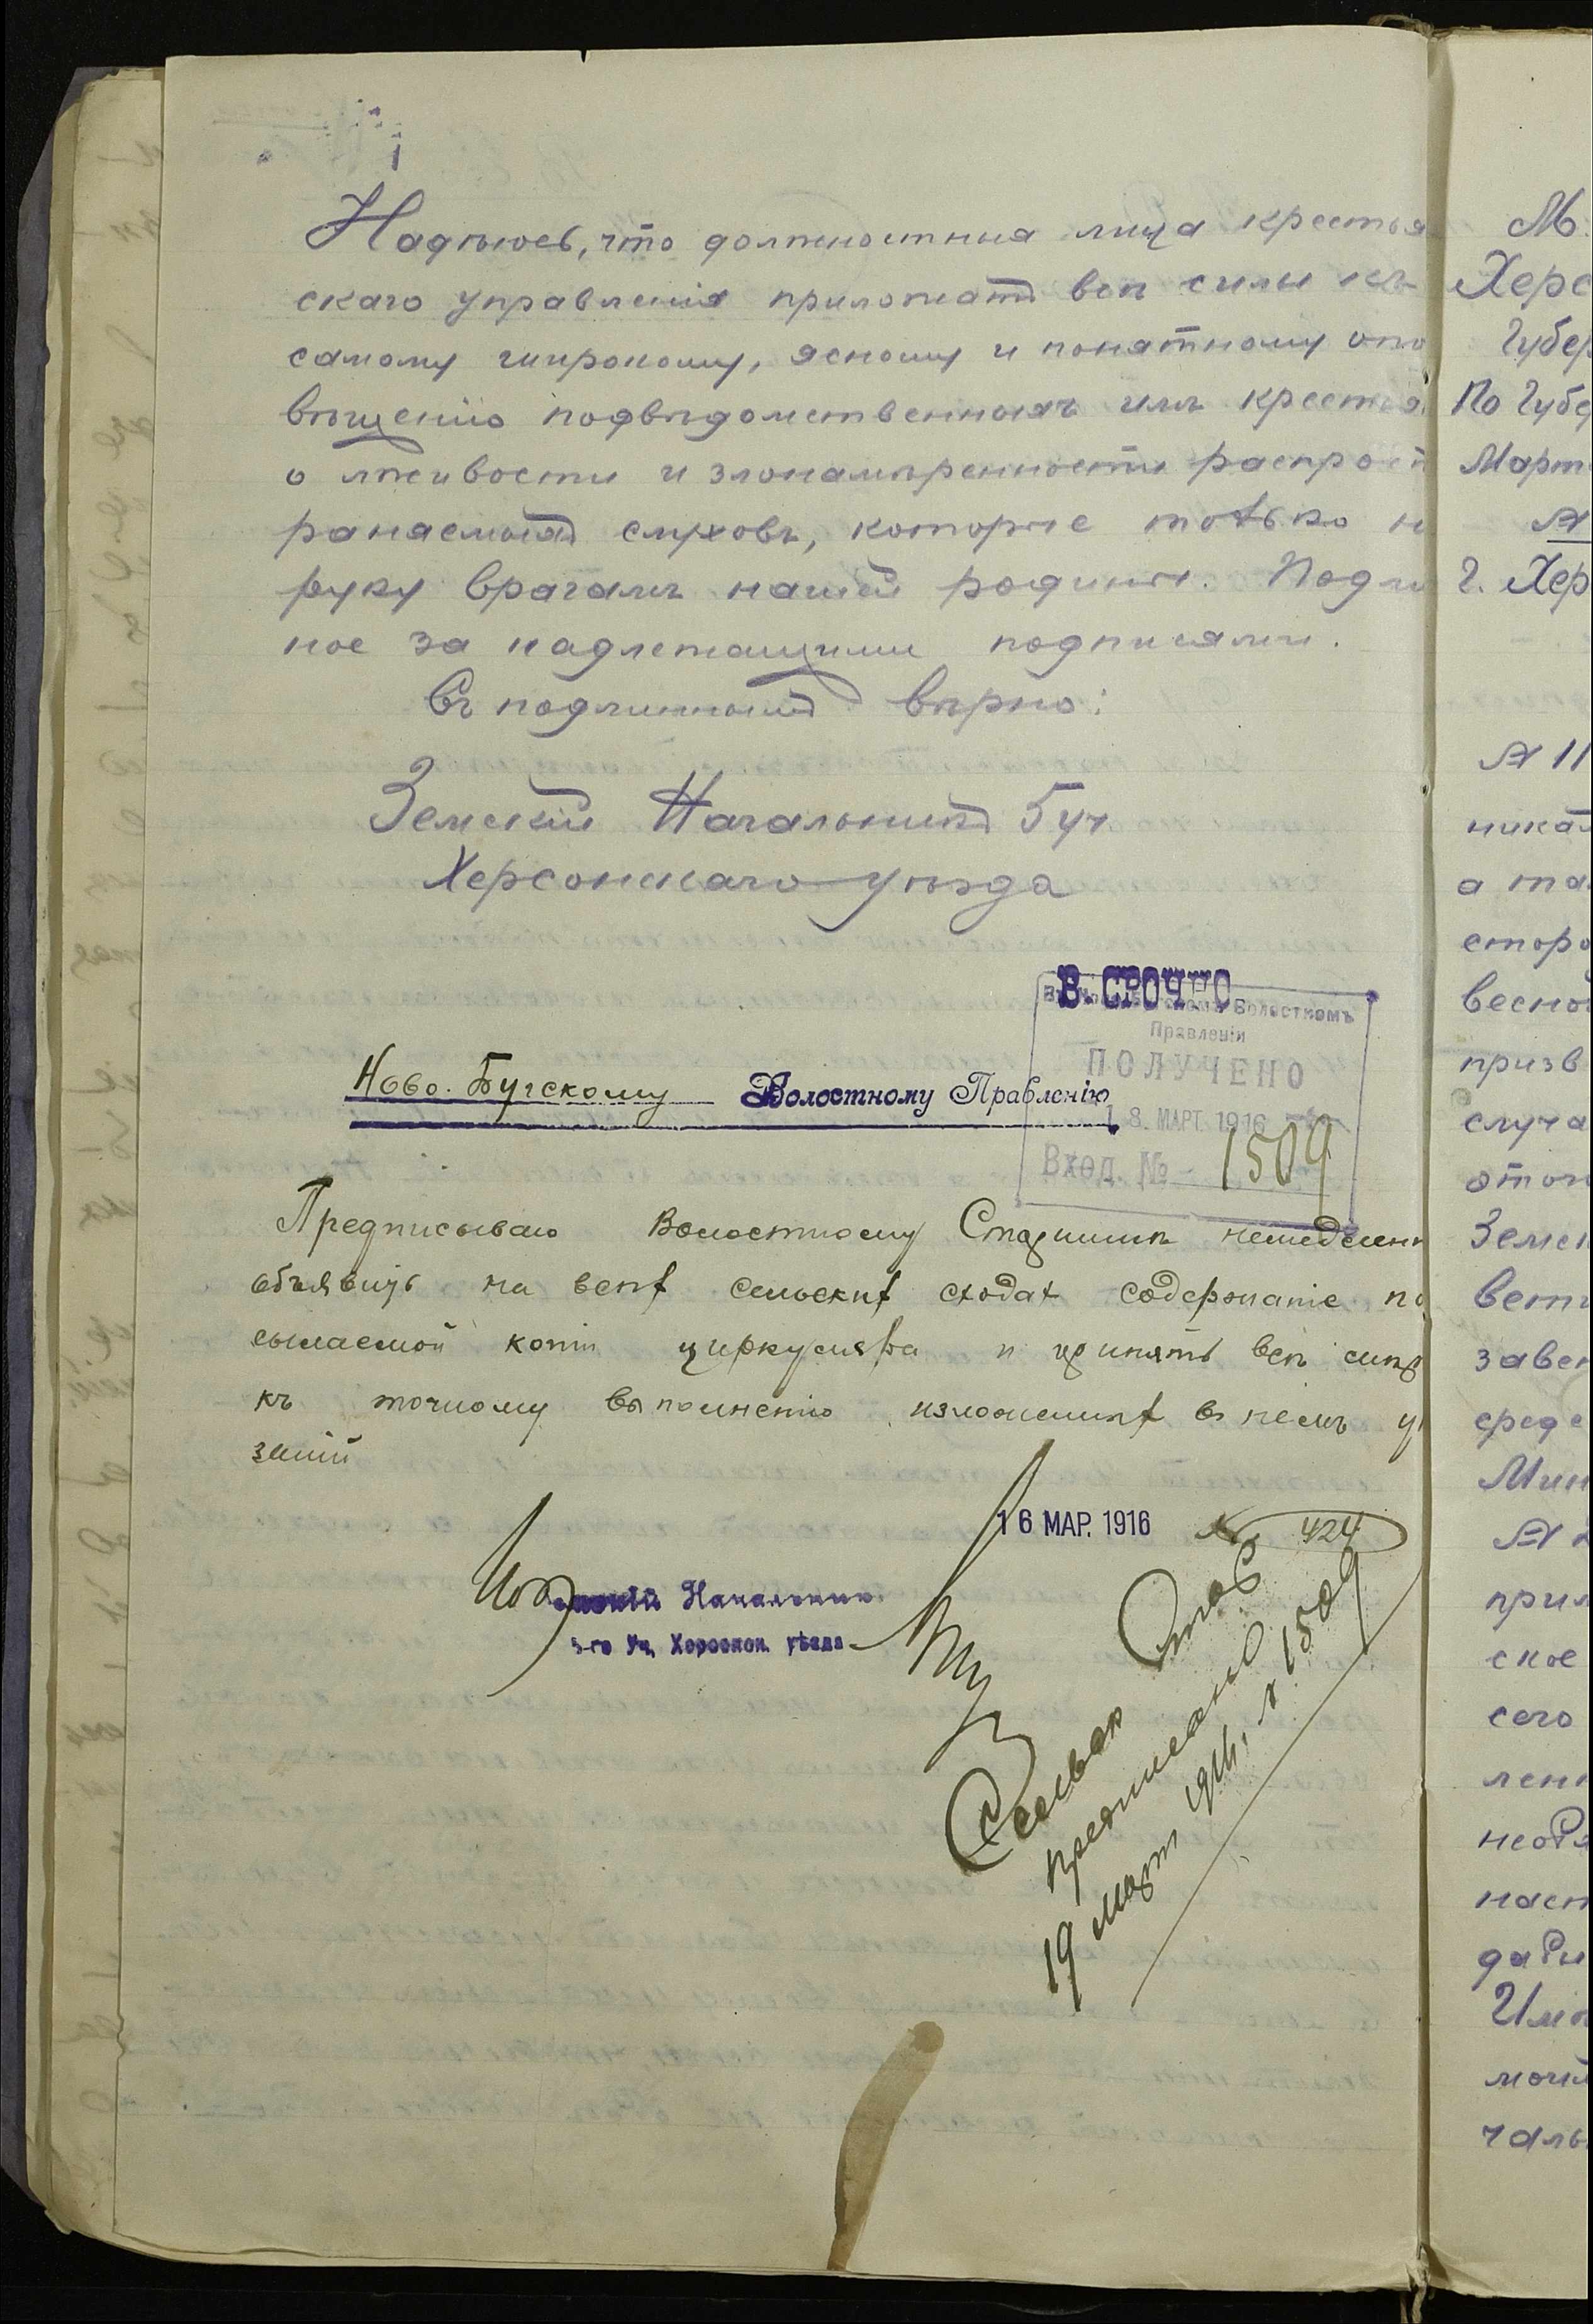 Надѣюсь, что должностныя лица крестья
скаго управленія приложатъ всѣ силы къ
самому широкому, ясному и понятному опо
вѣщенію подвѣдомственныхъ имъ крестья
о лживости и злонамѣренности распрост
раняемыхъ слуховъ, которые только н
руку врагамъ нашей родины. Подли
ное за надлежащими подписями.
Съ подлиннымъ вѣрно:
Земскій Начальникъ 5 уч
Херсонскаго уѣзда
В. СРОЧНО
Волостномъ
Правленіи
ПОЛУЧЕНО
18. МАРТ. 1916
Вход. № 1509
Ново-Бугскому Волостному Правленію
Предписываю Волостному Старшинѣ немедленн
объявить на всѣх сельских сходах содержаніе по
сылаемой копіи циркуляра и принять всѣ силы
къ точному выполненію изложенных в немъ ук
заній
16 МАР. 1916 № 424
Земскій Начальникъ
5-го Уч. Херсонск. уѣзда
Сельск Стар
предписано
19 март 1916, № 1509
М.
Херс
Губер
По Губе
Март
№
г. Хер
№ 11
никал
а та
сторо
весно
призв
случа
этом
Земс
вети
завед
среде
Мин
№
прил
ское
сего
лен
необх
наст
дари
Имп
мой
чаль